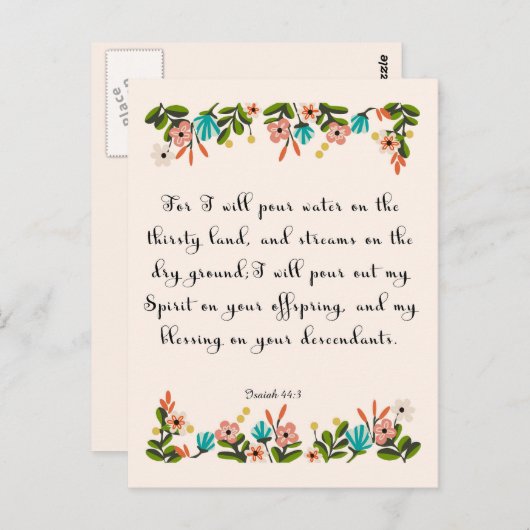 Place
zzle
For I will pour water on the
thirsty land, and streams on the
dry ground;I will pour out my
Spirit on your offspring, and my
blessing on your descendants.
Isaiah 44:3